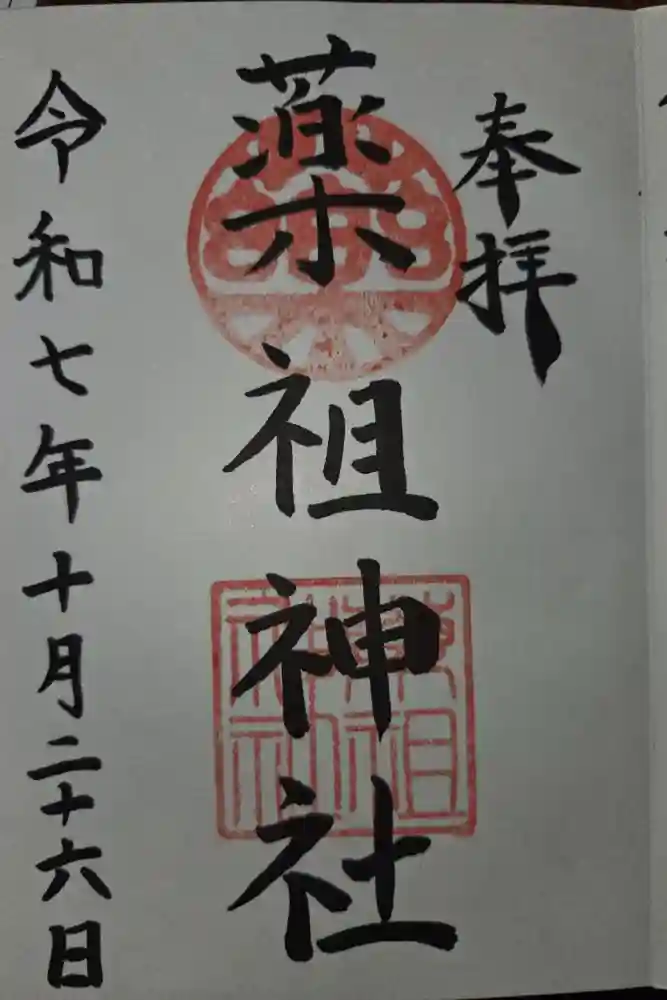 奉拝
薬祖神社
令和七年十月二十六日
薬祖
神社